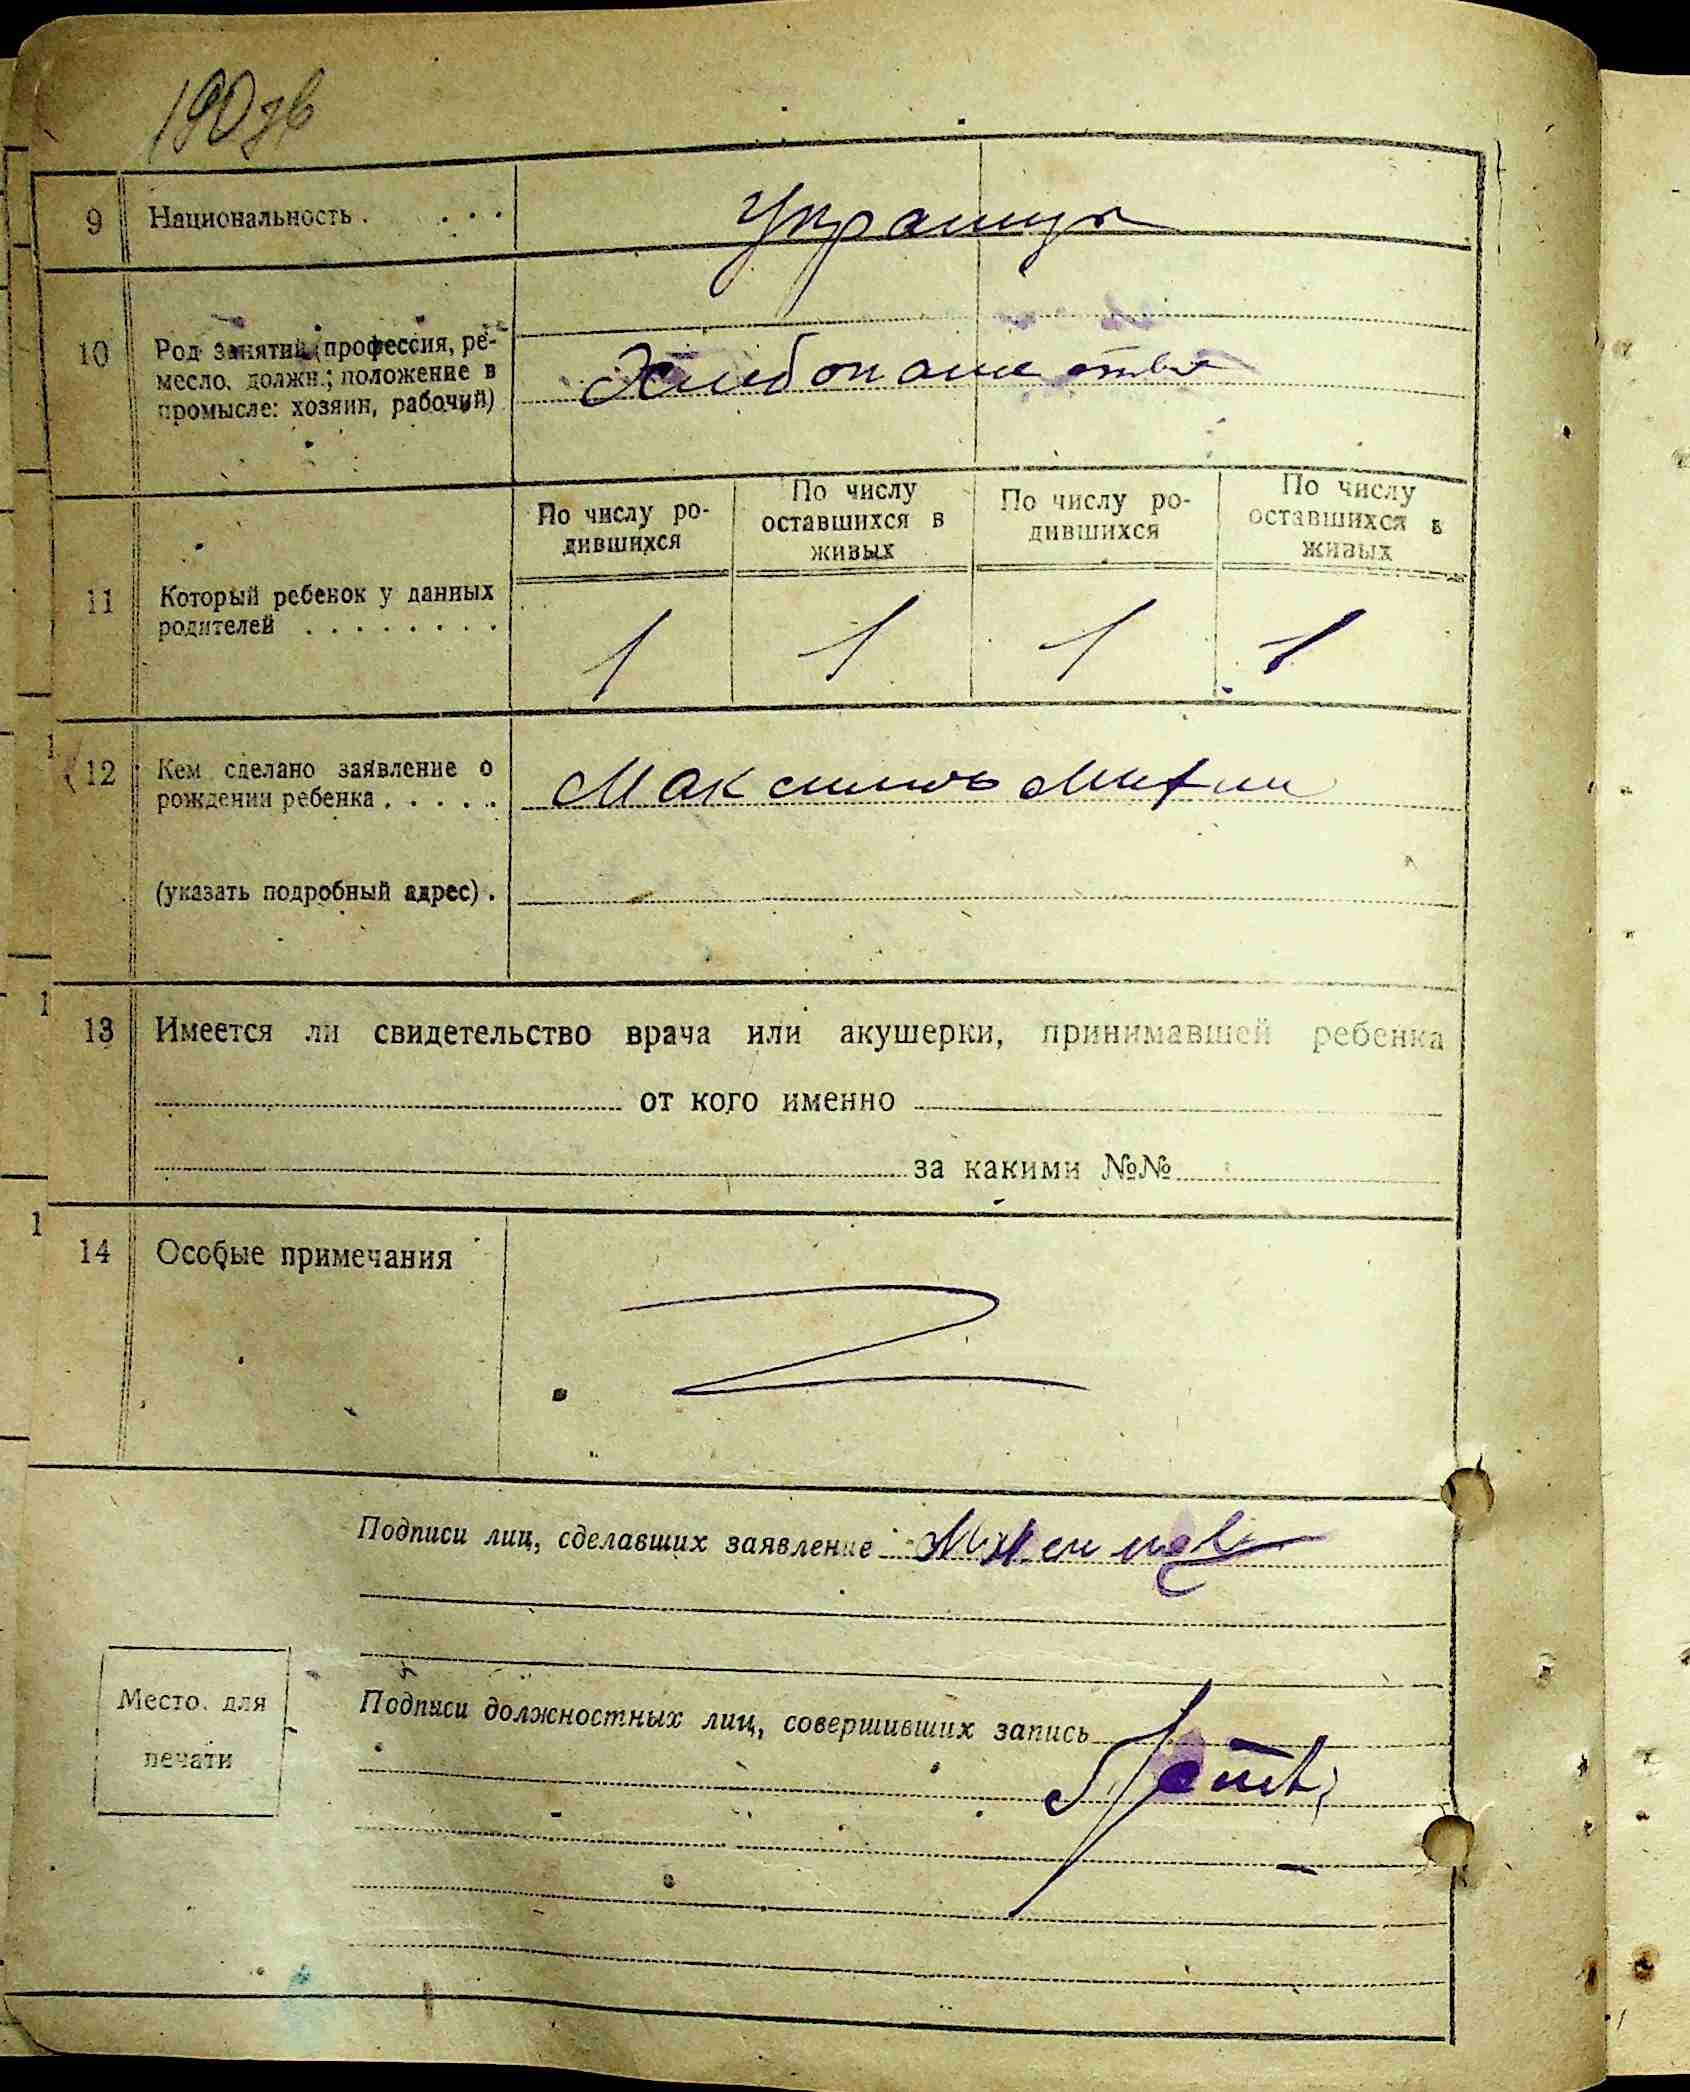 190 зв
9 Национальность . . . . Украинцы
10 Род занятий (профессия, ре-
месло, должн.; положение в
промысле: хозяин, рабочий) Хлебопашество
11 Который ребенок у данных
родителей . . . . . . . .
По числу ро-
дившихся
По числу
оставшихся в
живых
По числу ро-
дившихся
По числу
оставшихся в
живых
1 1 1 1
12 Кем сделано заявление о
рождении ребенка . . . . .
(указать подробный адрес) .
13 Имеется ли свидетельство врача или акушерки, принимавшей ребенка
от кого именно
за какими №№
14 Особые примечания
Подписи лиц, сделавших заявление
Подписи должностных лиц, совершивших запись
Место для
печати